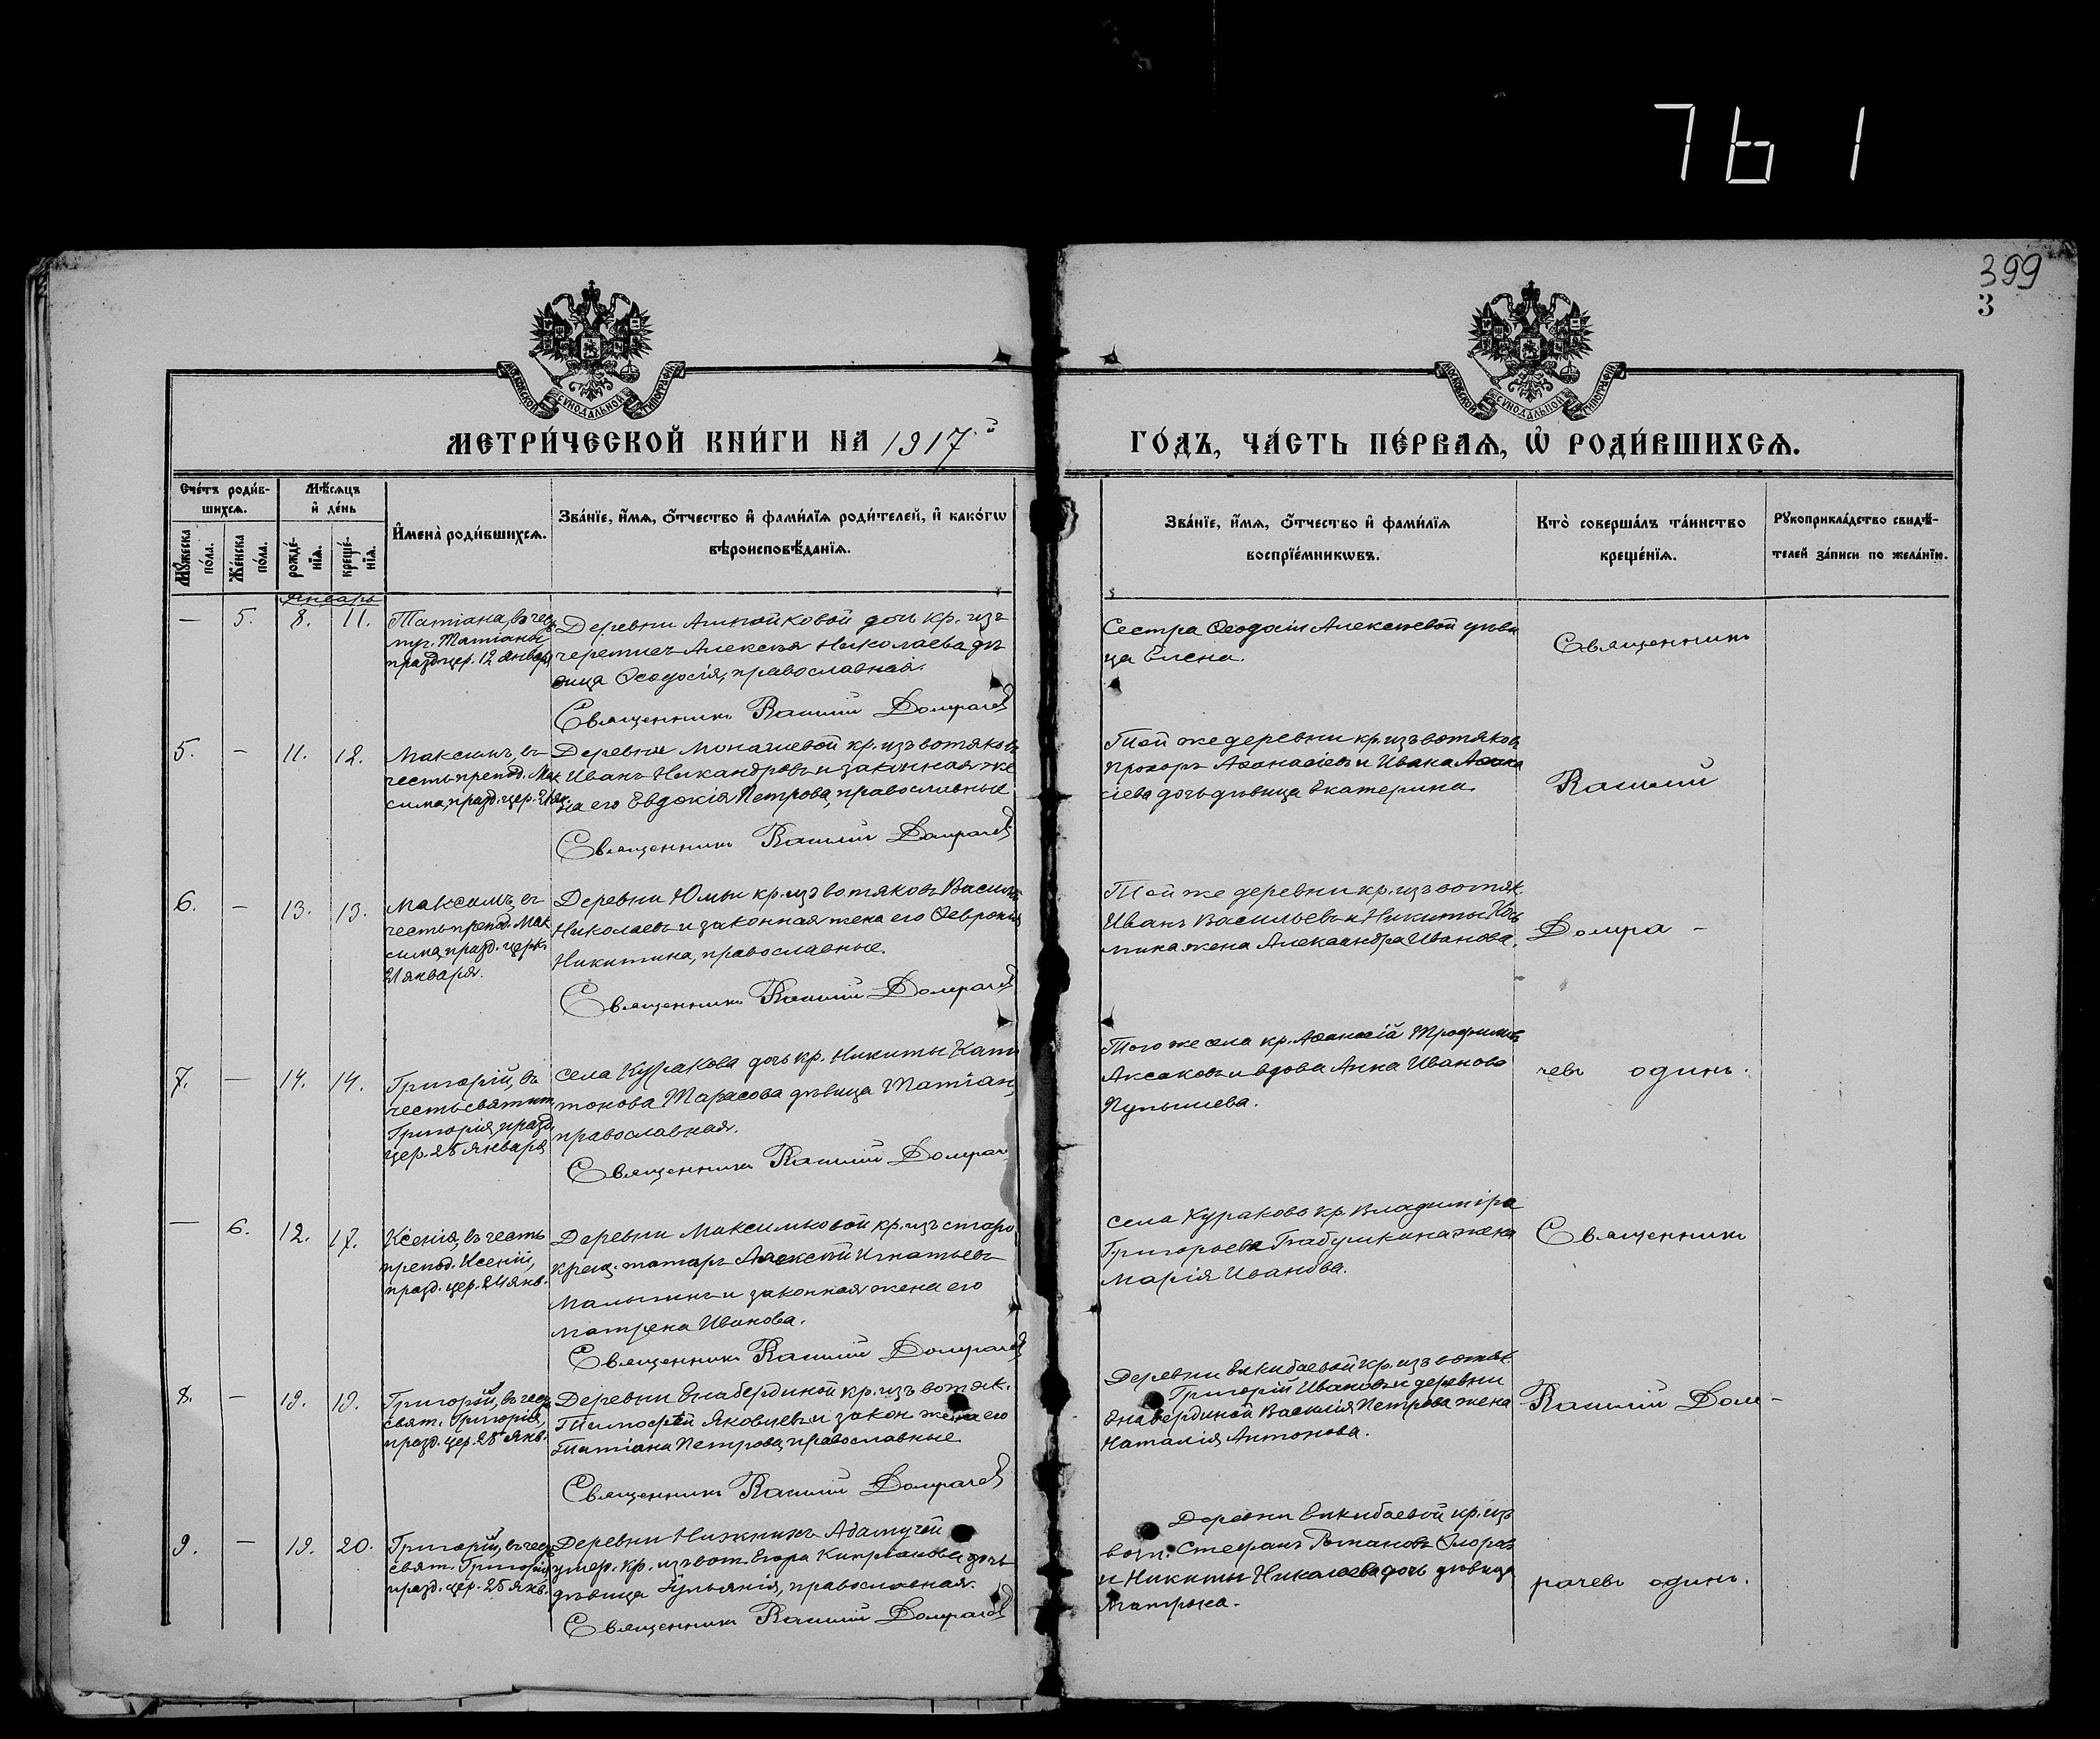 761
399
3
МОСКОВСКОЙ СѴНОДАЛЬНОЙ ТИПОГРАФІИ
МОСКОВСКОЙ СѴНОДАЛЬНОЙ ТИПОГРАФІИ
МЕТРИ́ЧЕСКОЙ КНИ́ГИ НА 1917.й ГО́ДЪ, ЧА́СТЬ ПЕ́РВАѦ, Ѡ҆ РОДИ́ВШИХСѦ.
Сче́тъ роди́в-
шихсѧ.
Мꙋ́жеска
по́ла.
Же́нска
по́ла.
Мѣ́сѧцъ
и҆ де́нь
рожде́-
нїѧ.
креще́-
нїѧ.
И҆мена̀ роди́вшихсѧ.
Зва́нїе, и҆́мѧ, ѻ҆́тчество и҆ фами́лїѧ роди́телей, и҆ како́гѡ
вѣроисповѣ́данїѧ.
Зва́нїе, и҆́мѧ, ѻ҆́тчество и҆ фами́лїѧ
воспрїе́мникѡвъ.
Кто̀ соверша́лъ та́инство
креще́нїѧ.
Рꙋкоприкла́дство свидѣ́-
телей за́писи по жела́нїю.
Январь
— 5. 8. 11.
Татіана, въ чес
муч. Татіаны
празд. цер. 12 января
Деревни дочь кр. изъ
Алексѣя Николаева дѣ
вица Ѳеодосія, православная.
Священникъ Василій Домрачев
Сестра Ѳеодосіи Алексѣевой дѣви
ца Елена.
Священникъ
5. — 11. 12.
Максимъ, въ
честь препод. Мак
сима, празд. цер. 21 ян.
Деревни кр. изъ вотяковъ
Иванъ Никандровъ и законная же
на его Евдокія Петрова, православные
Священникъ Василій Домрачев
Той же деревни кр. изъ вотяковъ
Прохоръ Аѳанасіевъ и Ивана Аѳана
сіева дочь дѣвица Екатерина.
Василій
6. — 13. 13.
Максимъ, въ
честь препод. Мак
сима, празд. церк.
21 января.
Деревни Юмьи кр. изъ вотяковъ Василій
Николаевъ и законная жена его Ѳевронія
Никитина, православные.
Священникъ Василій Домрачев
Той же деревни кр. изъ вотяк.
Иванъ Васильевъ и Никиты
жена Александра Иванова.
Домра -
7. — 14. 14.
Григорій, въ
честь святит.
Григорія, празд.
цер. 25 января
Села Куракова дочь кр. Никиты Капи
тонова Тарасова дѣвица Татіан,
православная.
Священникъ Василій Домрач
Того же села кр. Аѳанасій Трофимовъ
Аксаковъ и вдова Анна Иванова
Пупышева.
чевъ одинъ.
— 6. 12. 17.
Ксенія, въ честь
препод. Ксеніи,
празд. цер. 24 янв.
Деревни Максимковой кр. изъ старо
крещ. татаръ Алексѣй Игнатьевъ
Малыгинъ и законная жена его
Матрена Иванова.
Священникъ Василій Домрачев
Села Куракова кр. Владиміра
Григорьева Бабушкина жена
Марія Иванова.
Священникъ
8. — 19. 19.
Григорій, въ чес
свят. Григорія,
празд. цер. 25 янв.
Деревни Енабердиной кр. изъ вотяк.
Тимоѳей Яковлевъ и закон. жена его
Татіана Петрова, православные
Священникъ Василій Домрачев
Деревни Бикибаевой кр. изъ вотяк.
Григорій Ивановъ и деревни
Енабердиной Василія Петрова жена
Наталія Антонова.
Василій Дом-
9. — 19. 20.
Григорій, въ чес
свят. Григорія
празд. цер. 25 янв.
Деревни Нижнихъ Адамучей
умер. кр. изъ вот. Егора Кипріанова дочь
дѣвица Іульянія, православная.
Священникъ Василій Домрачев
Деревни Бикибаевой кр. изъ
вотя. Стефанъ Романовъ
и Никиты Николаева дочь дѣвица
Матрона.
рачевъ одинъ.